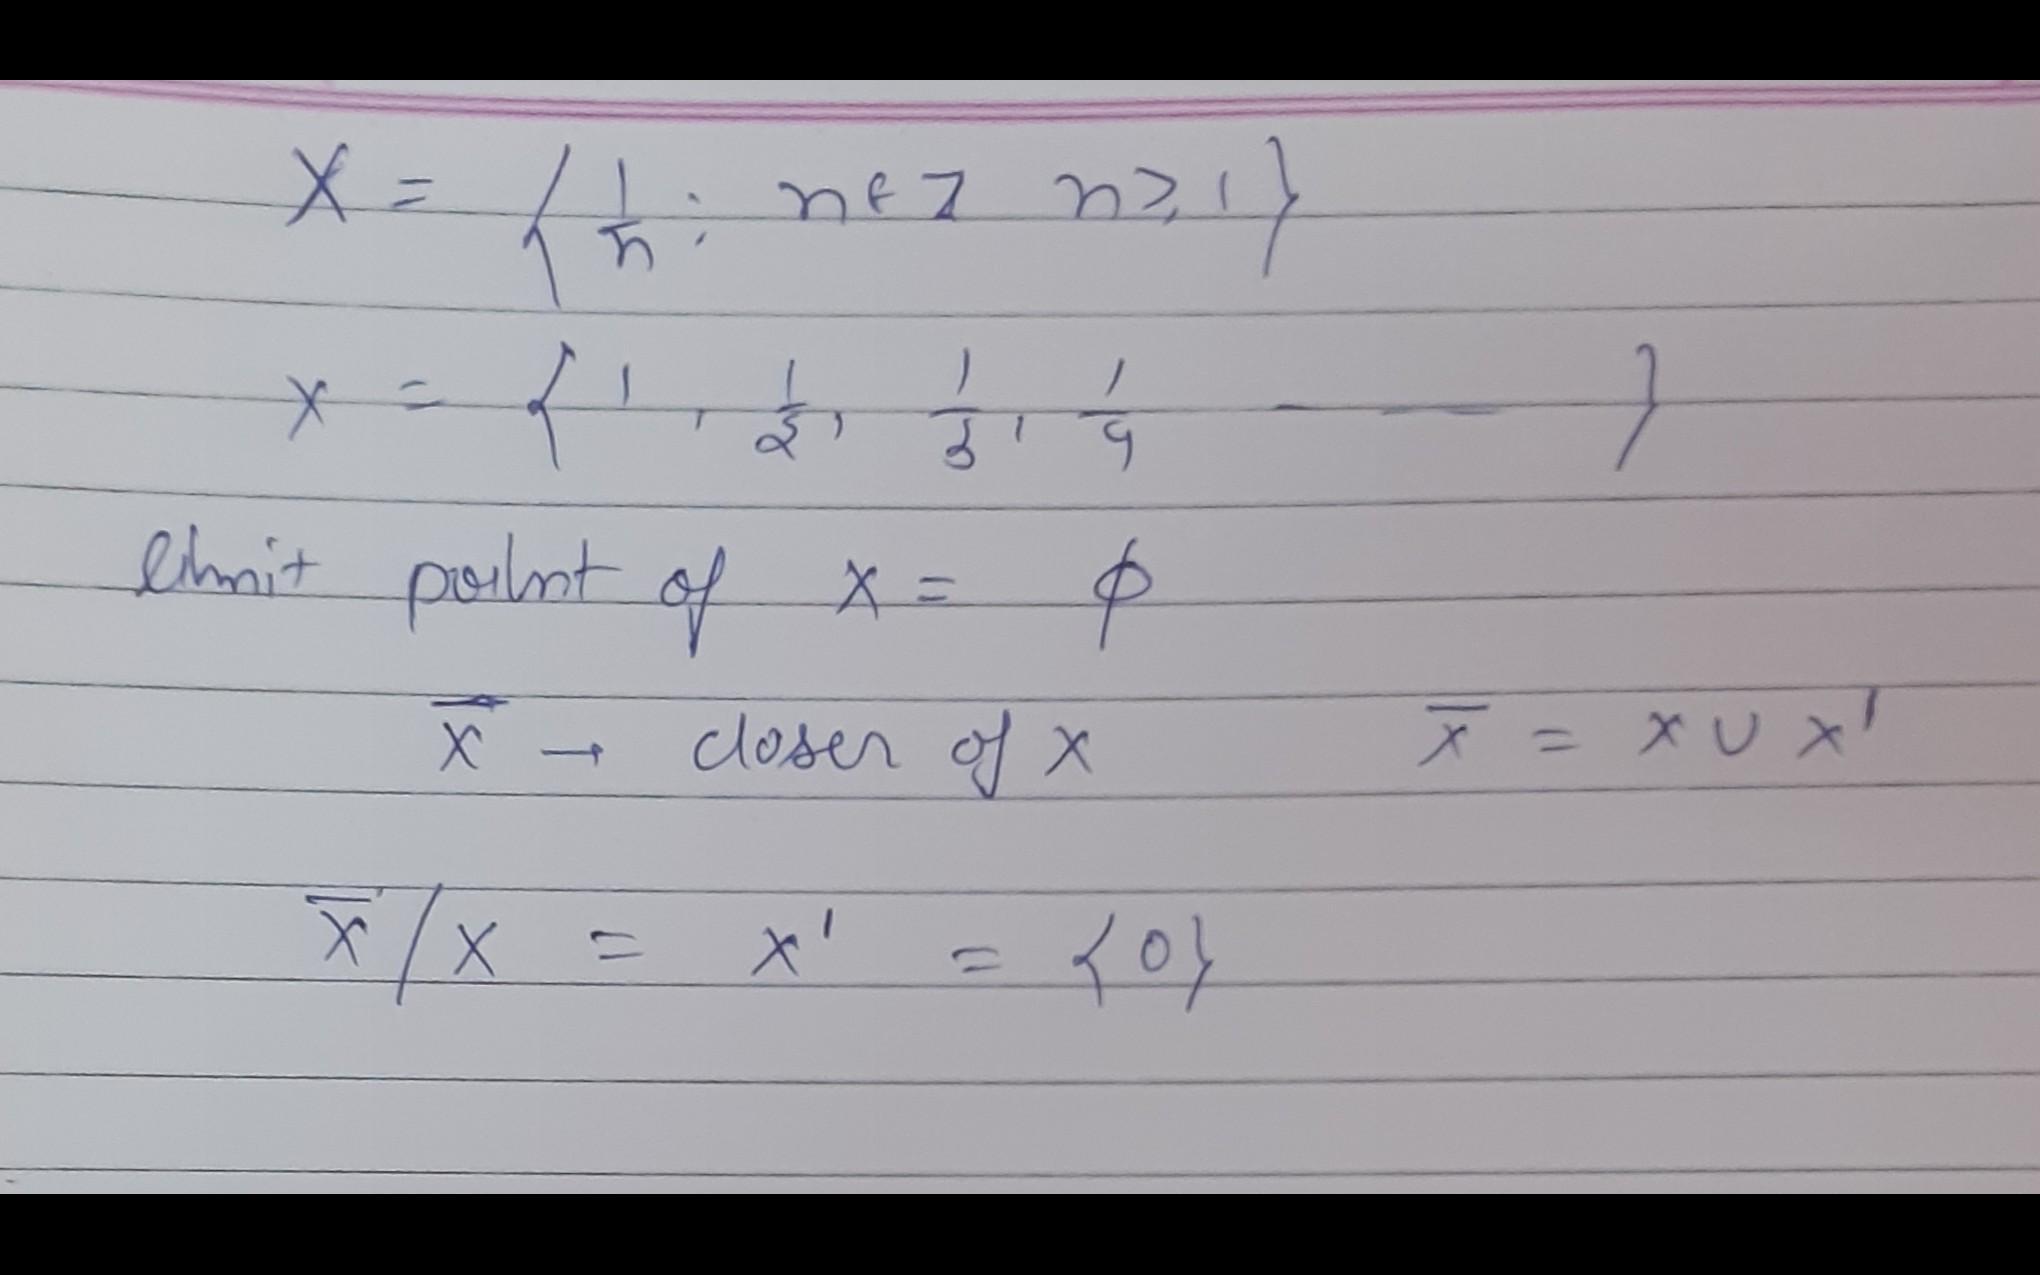 X = { 1/n : n ∈ Z n ≥ 1 }
X = { 1, 1/2, 1/3, 1/4 - — }
limit point of X = ϕ
X̅ → closer of X X̅ = X ∪ X'
X̅ / X = X' = {0}